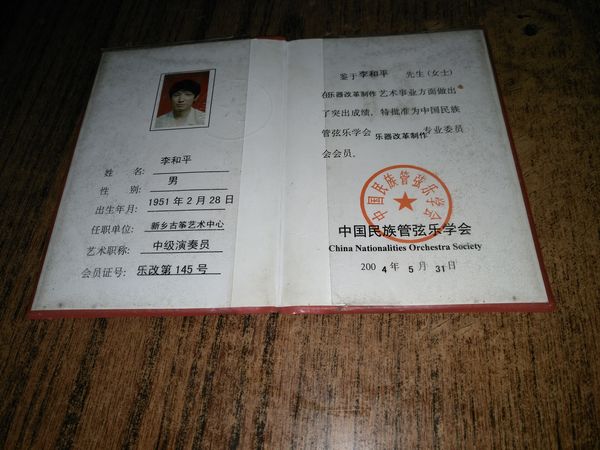 姓 名: 李和平
性 别: 男
出生年月: 1951年2月28日
任职单位: 新乡古筝艺术中心
艺术职称: 中级演奏员
会员证号: 乐改第145号
鉴于李和平 先生(女士)
在乐器改革制作艺术事业方面做出
了突出成绩，特批准为中国民族
管弦乐学会 乐器改革制作 专业委员
会会员。
中国民族管弦乐学会
中国民族管弦乐学会
China Nationalities Orchestra Society
2004年5月31日